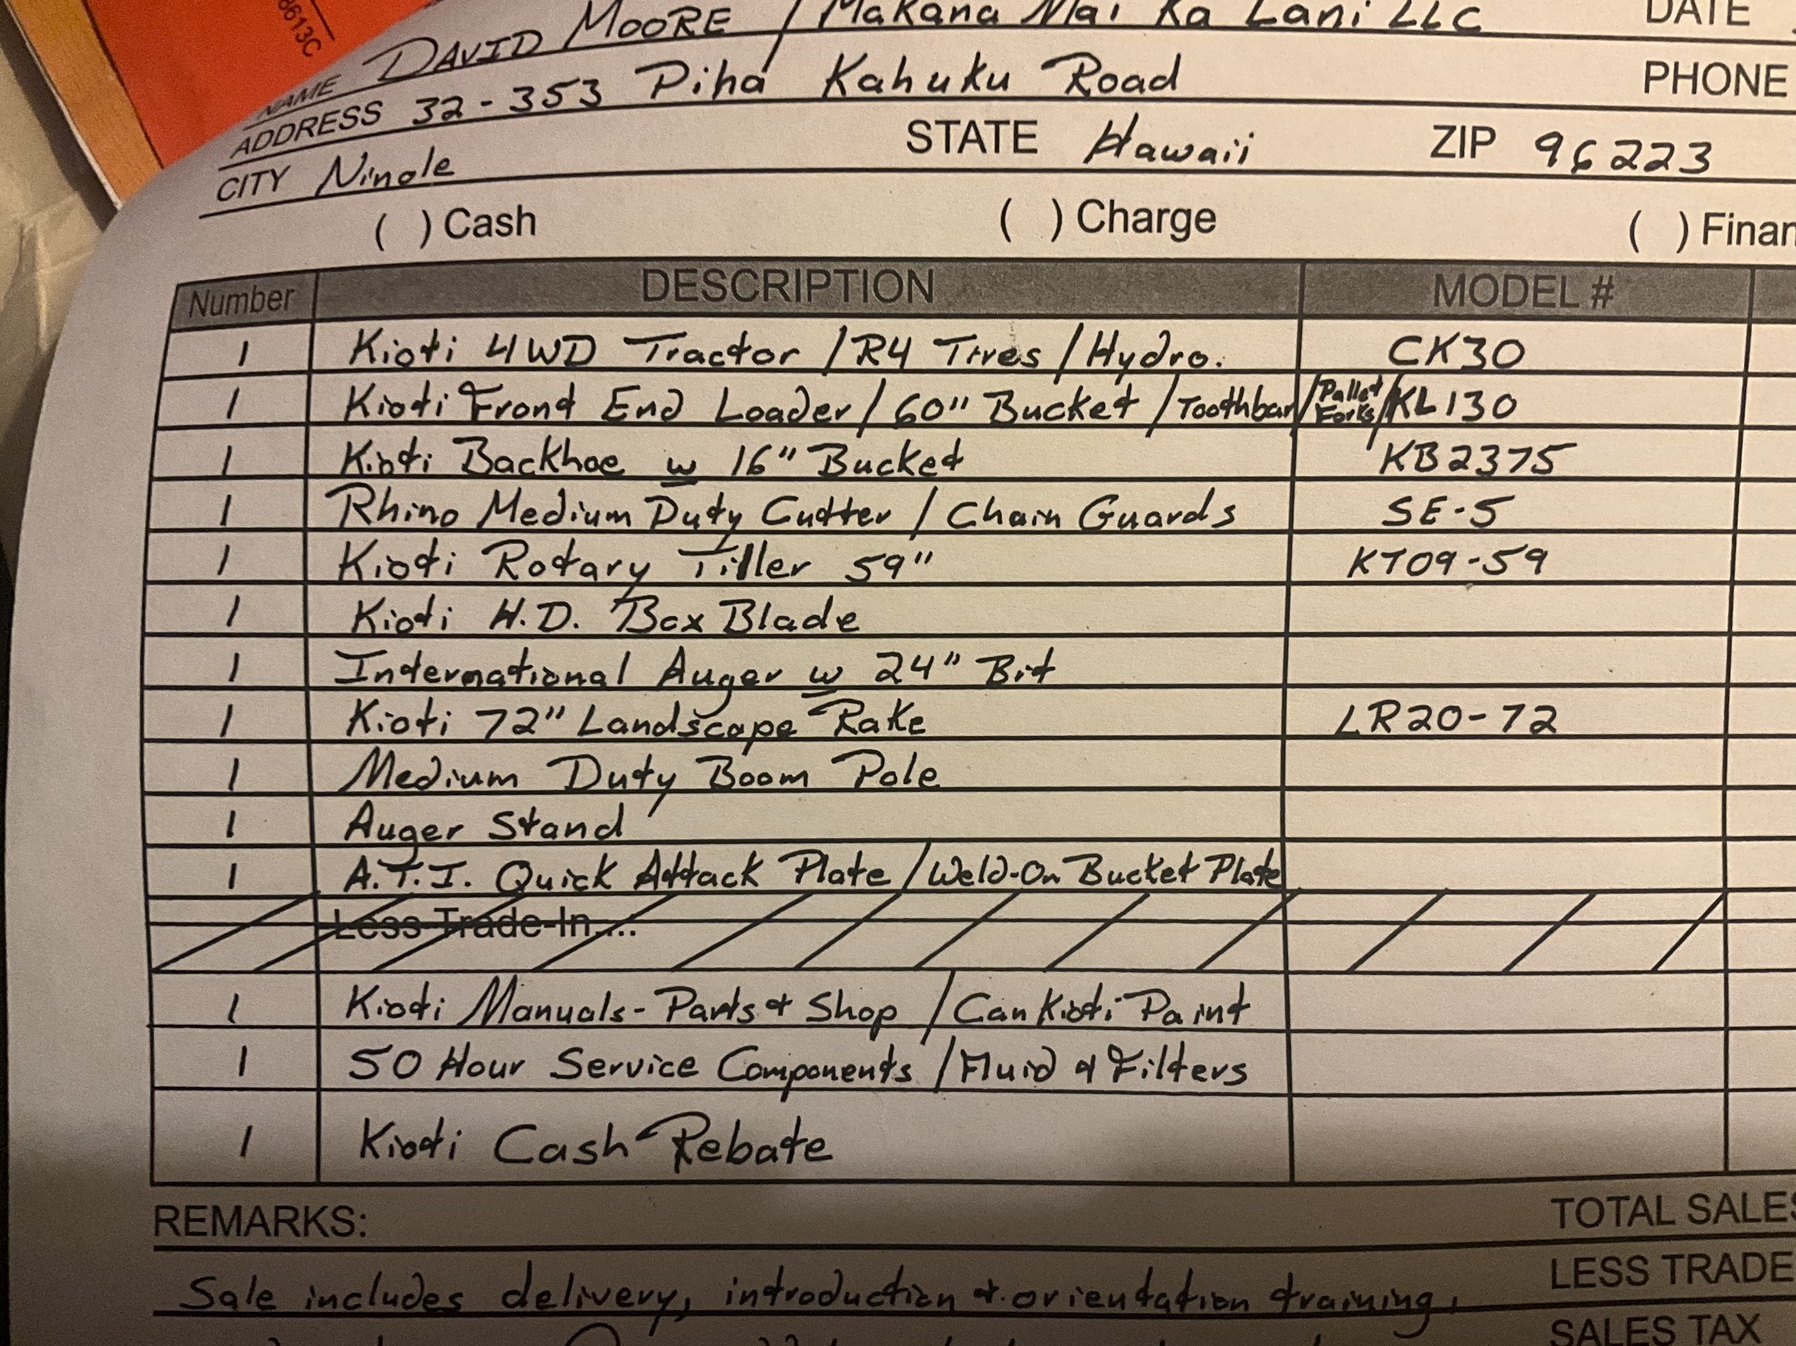 8613C
NAME DAVID MOORE / Makana Mai Ka Lani LLC DATE
ADDRESS 32-353 Piha Kahuku Road PHONE
CITY Ninole STATE Hawaii ZIP 96223
( ) Cash ( ) Charge ( ) Finan
Number DESCRIPTION MODEL #
1 Kioti 4WD Tractor / R4 Tires / Hydro. CK30
1 Kioti Front End Loader / 60" Bucket / Toothbar / Pallet Forks / KL130
1 Kioti Backhoe w 16" Bucket KB2375
1 Rhino Medium Duty Cutter / Chain Guards SE-5
1 Kioti Rotary Tiller 59" KT09-59
1 Kioti H.D. Box Blade
1 International Auger w 24" Bit
1 Kioti 72" Landscape Rake LR20-72
1 Medium Duty Boom Pole
1 Auger Stand
1 A.T.I. Quick Attack Plate / Weld-On Bucket Plate
Less Trade-In....
1 Kioti Manuals - Parts & Shop / Can Kioti Paint
1 50 Hour Service Components / Fluid & Filters
1 Kioti Cash Rebate
REMARKS: TOTAL SALES
Sale includes delivery, introduction & orientation training, LESS TRADE
SALES TAX